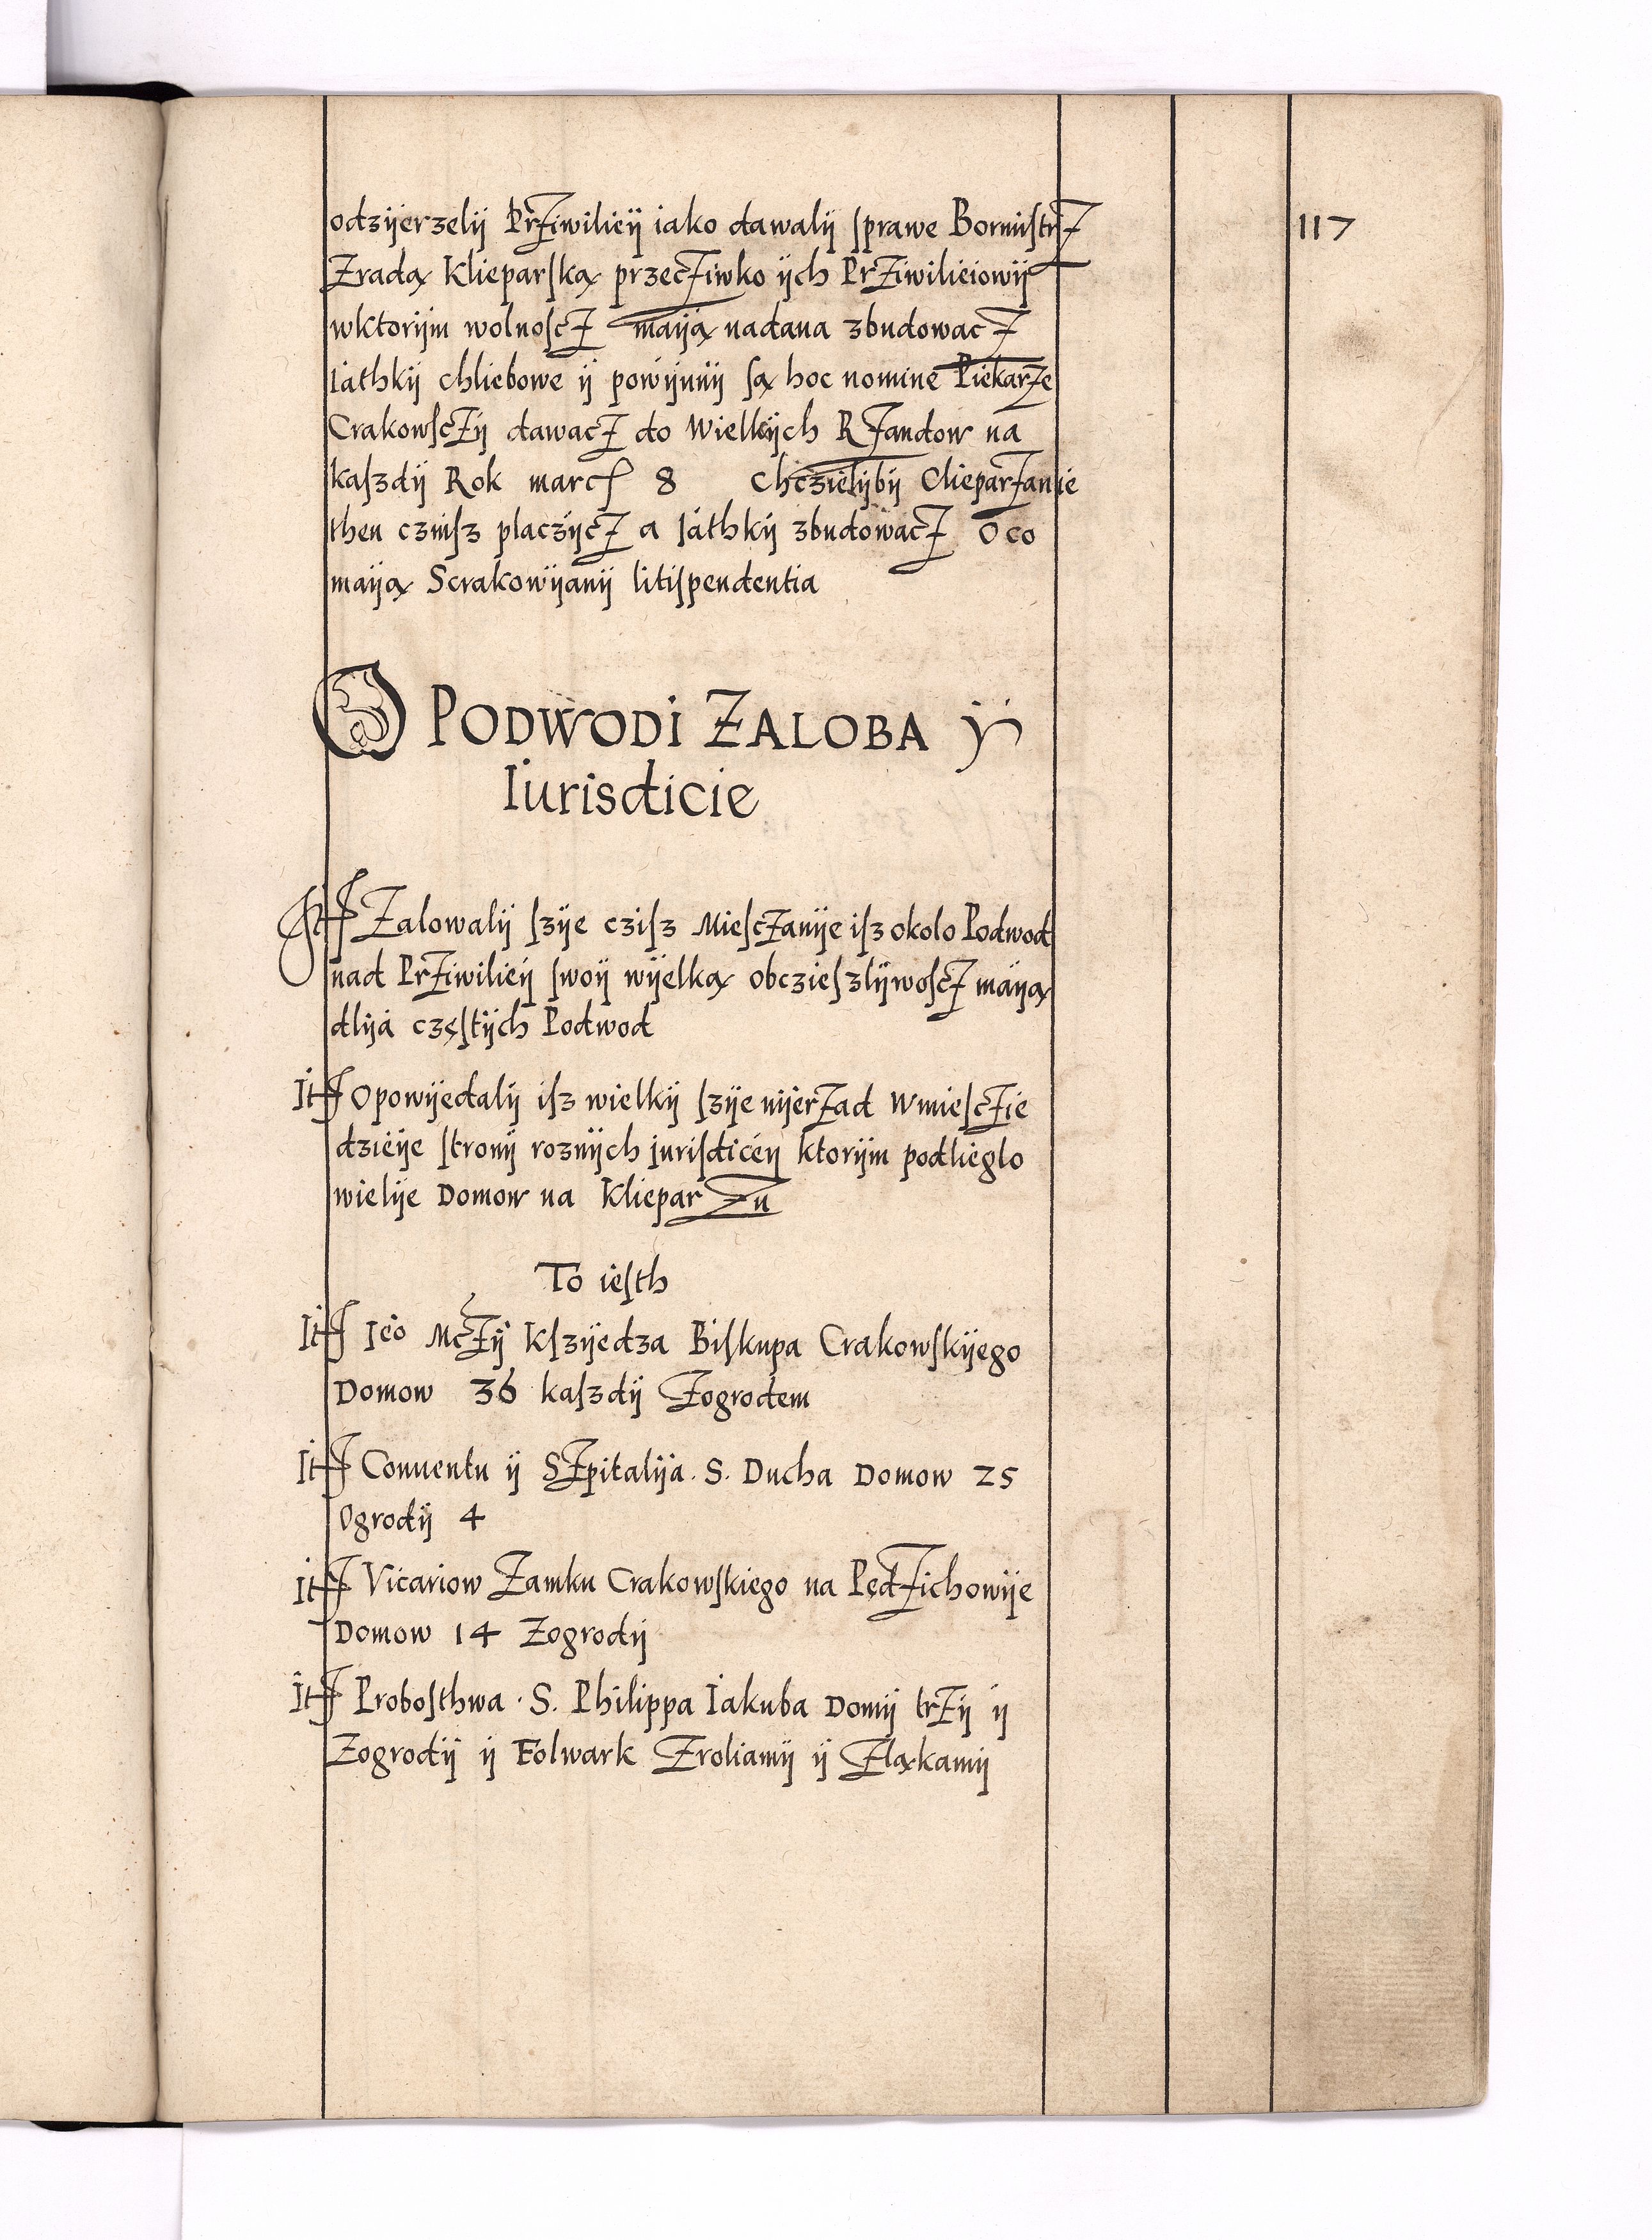 odzÿerzelÿ Przÿwilieÿ iako dawalÿ sprawe Bormistrz
117
Zradą Klieparską przecziwko ÿch Prziwilieiowÿ
wktorÿm wolnoscz maÿą nadana zbudowacz
Iathkÿ chliebowe ÿ powÿnnÿ są hoc nomine Piekarze
Crakowsczÿ dawacz do Wielkÿch Rzandow na
kaszdÿ Rok marc 8 Chczielÿbÿ Clieparzanie
then cznisz placzÿcz a Iathkÿ zbudowacz O co
maÿą Scrakowÿanÿ litispendentia
O PODWODI ZALOBA ÿ
Iurisdicie
It Zalowalÿ szÿe czisz Miesczanÿe isz okolo Podwod
nad Prziwilieÿ swoÿ wÿelką obczieszlÿwoscz maÿą
dlÿa częstÿch Podwod
It Opowÿedalÿ isz wielkÿ szÿe nÿerzad Wmiesczie
dzieÿe stronÿ roznÿch jurisdiceÿ ktorÿm podlieglo
wielÿe Domow na Klieparzu
To iesth
It Ieo Mczÿ Kszÿedza Biskupa Crakowskÿego
Domow 36 kaszdÿ Zogrodem
It Conuentu ÿ Szpitalÿa. S. Ducha Domow 25
Ogrodÿ 4
It Vicariow Zamku Crakowskiego na Pędzichowÿe
Domow 14 Zogrodÿ
It Probosthwa. S. Philippa Iakuba Domÿ trzÿ ÿ
Zogrodÿ ÿ Folwark Zroliamÿ ÿ Ząkamÿ